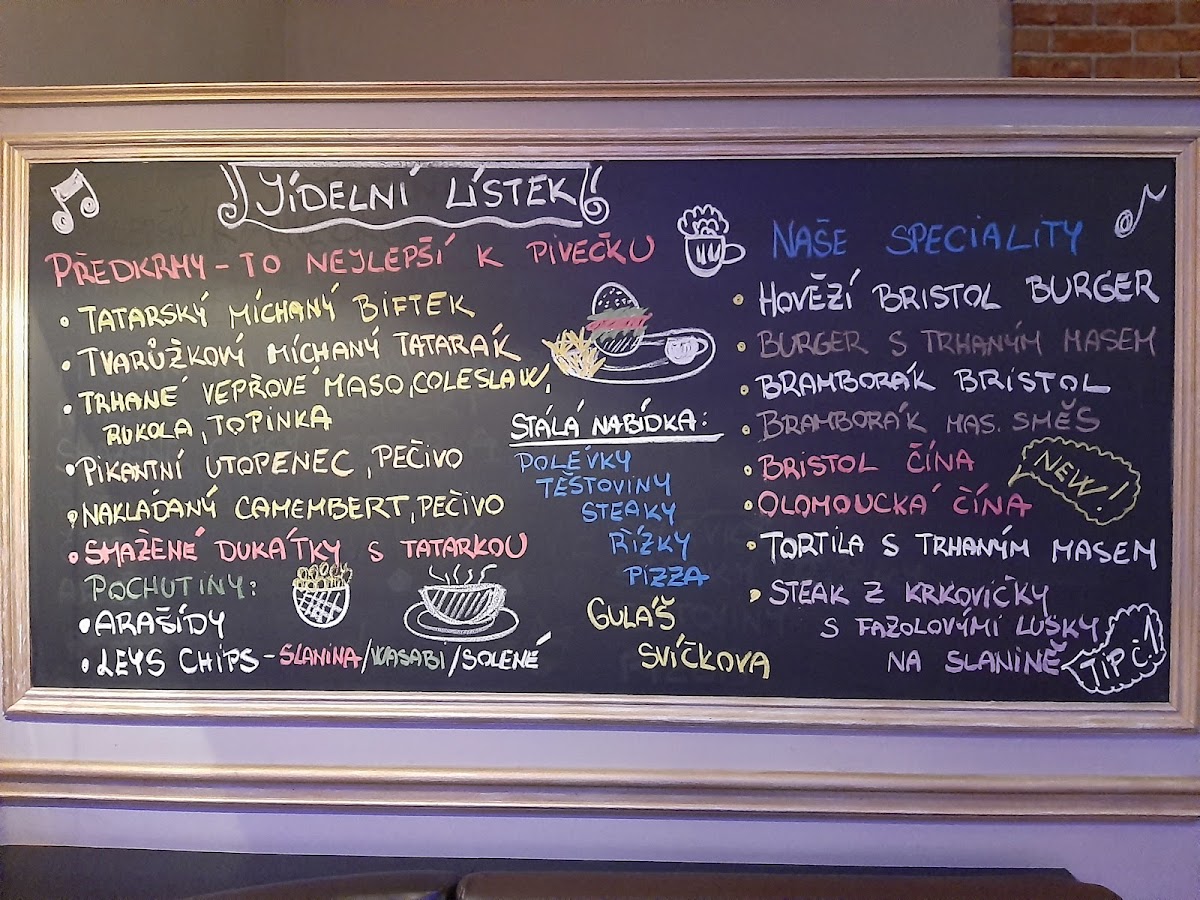 JÍDELNÍ LÍSTEK
PŘEDKRMY - TO NEJLEPŠÍ K PIVEČKU
• TATARSKÝ MÍCHANÝ BIFTEK
• TVARŮŽKOVÝ MÍCHANÝ TATARÁK
• TRHANÉ VEPŘOVÉ MASO, COLESLAW,
RUKOLA, TOPINKA
• PIKANTNÍ UTOPENEC, PEČIVO
• NAKLÁDANÝ CAMEMBERT, PEČIVO
• SMAŽENÉ DUKÁTKY S TATARKOU
POCHUTINY:
• ARAŠÍDY
• LEYS CHIPS - SLANINA/WASABI/SOLENÉ
STÁLÁ NABÍDKA:
POLÉVKY
TĚSTOVINY
STEAKY
ŘÍZKY
PIZZA
GULÁŠ
SVÍČKOVA
NAŠE SPECIALITY
• HOVĚZÍ BRISTOL BURGER
• BURGER S TRHANÝM MASEM
• BRAMBORÁK BRISTOL
• BRAMBORÁK MAS. SMĚS
• BRISTOL ČÍNA
• OLOMOUCKÁ ČÍNA
NEW!
• TORTILA S TRHANÝM MASEM
• STEAK Z KRKOVIČKY
S FAZOLOVÝMI LUSKY
NA SLANINĚ
TIP Č.1